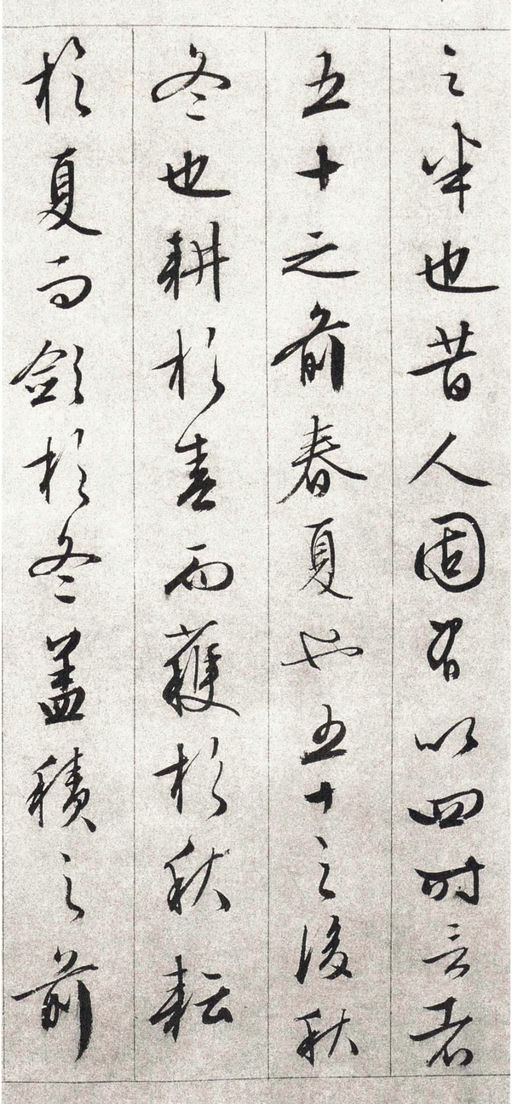 之半也昔人固有以四时言者
五十之前春夏也五十之後秋
冬也耕於春而穫於秋耘
於夏而斂於冬盖積之前